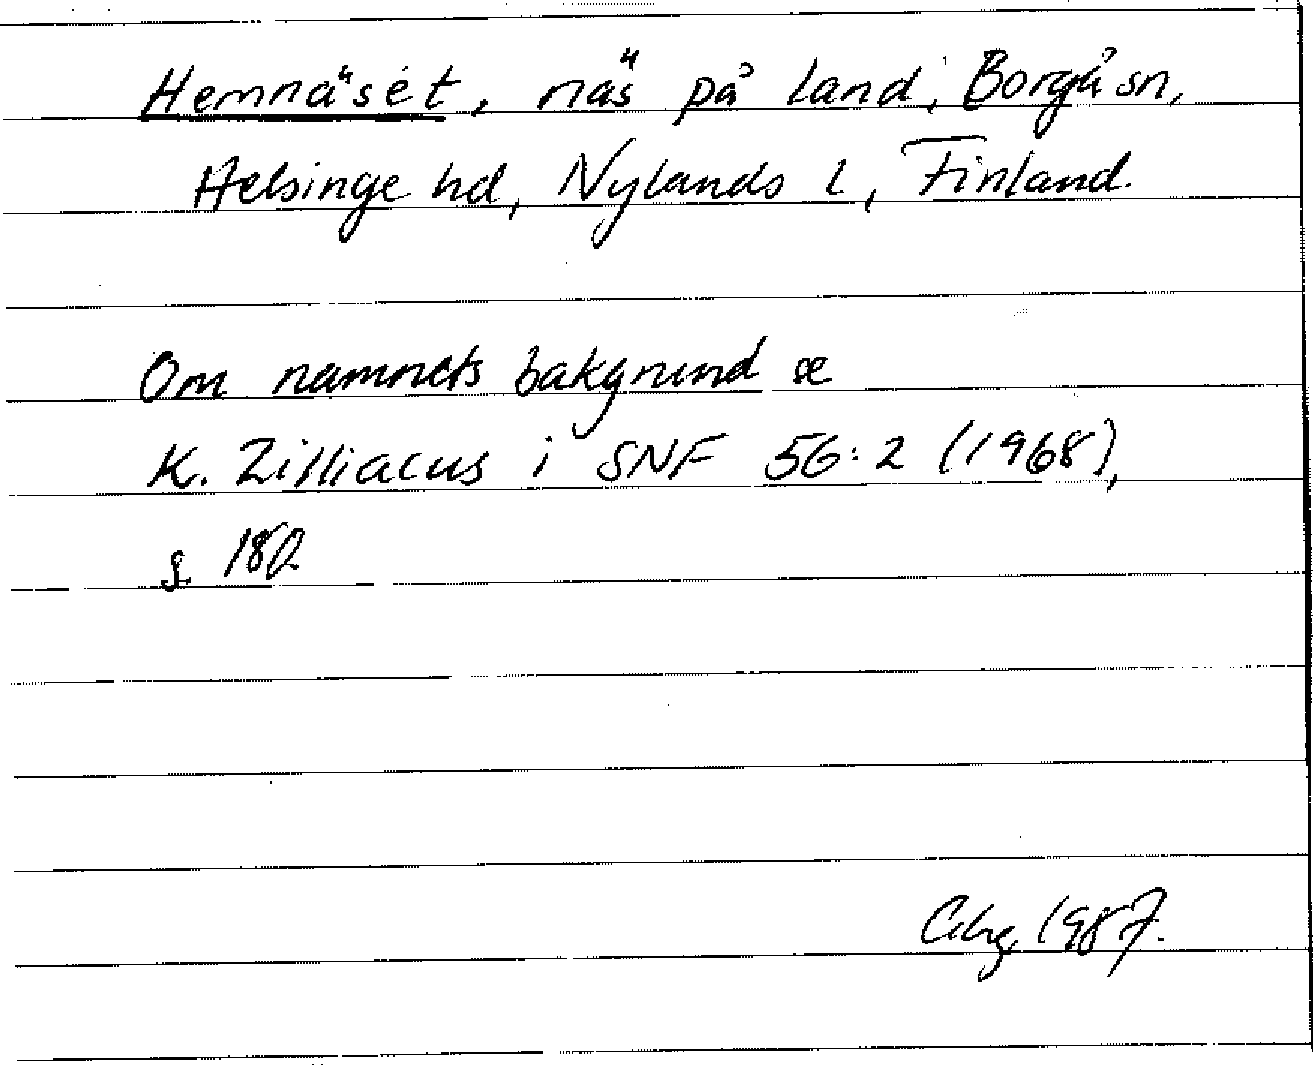 Hemnäset, näs på land, Borgå sn,
Helsinge hd, Nylands l, Finland.
Om namnets bakgrund se
K. Zilliacus i SNF 56:2 (1968),
s. 180.
1987.